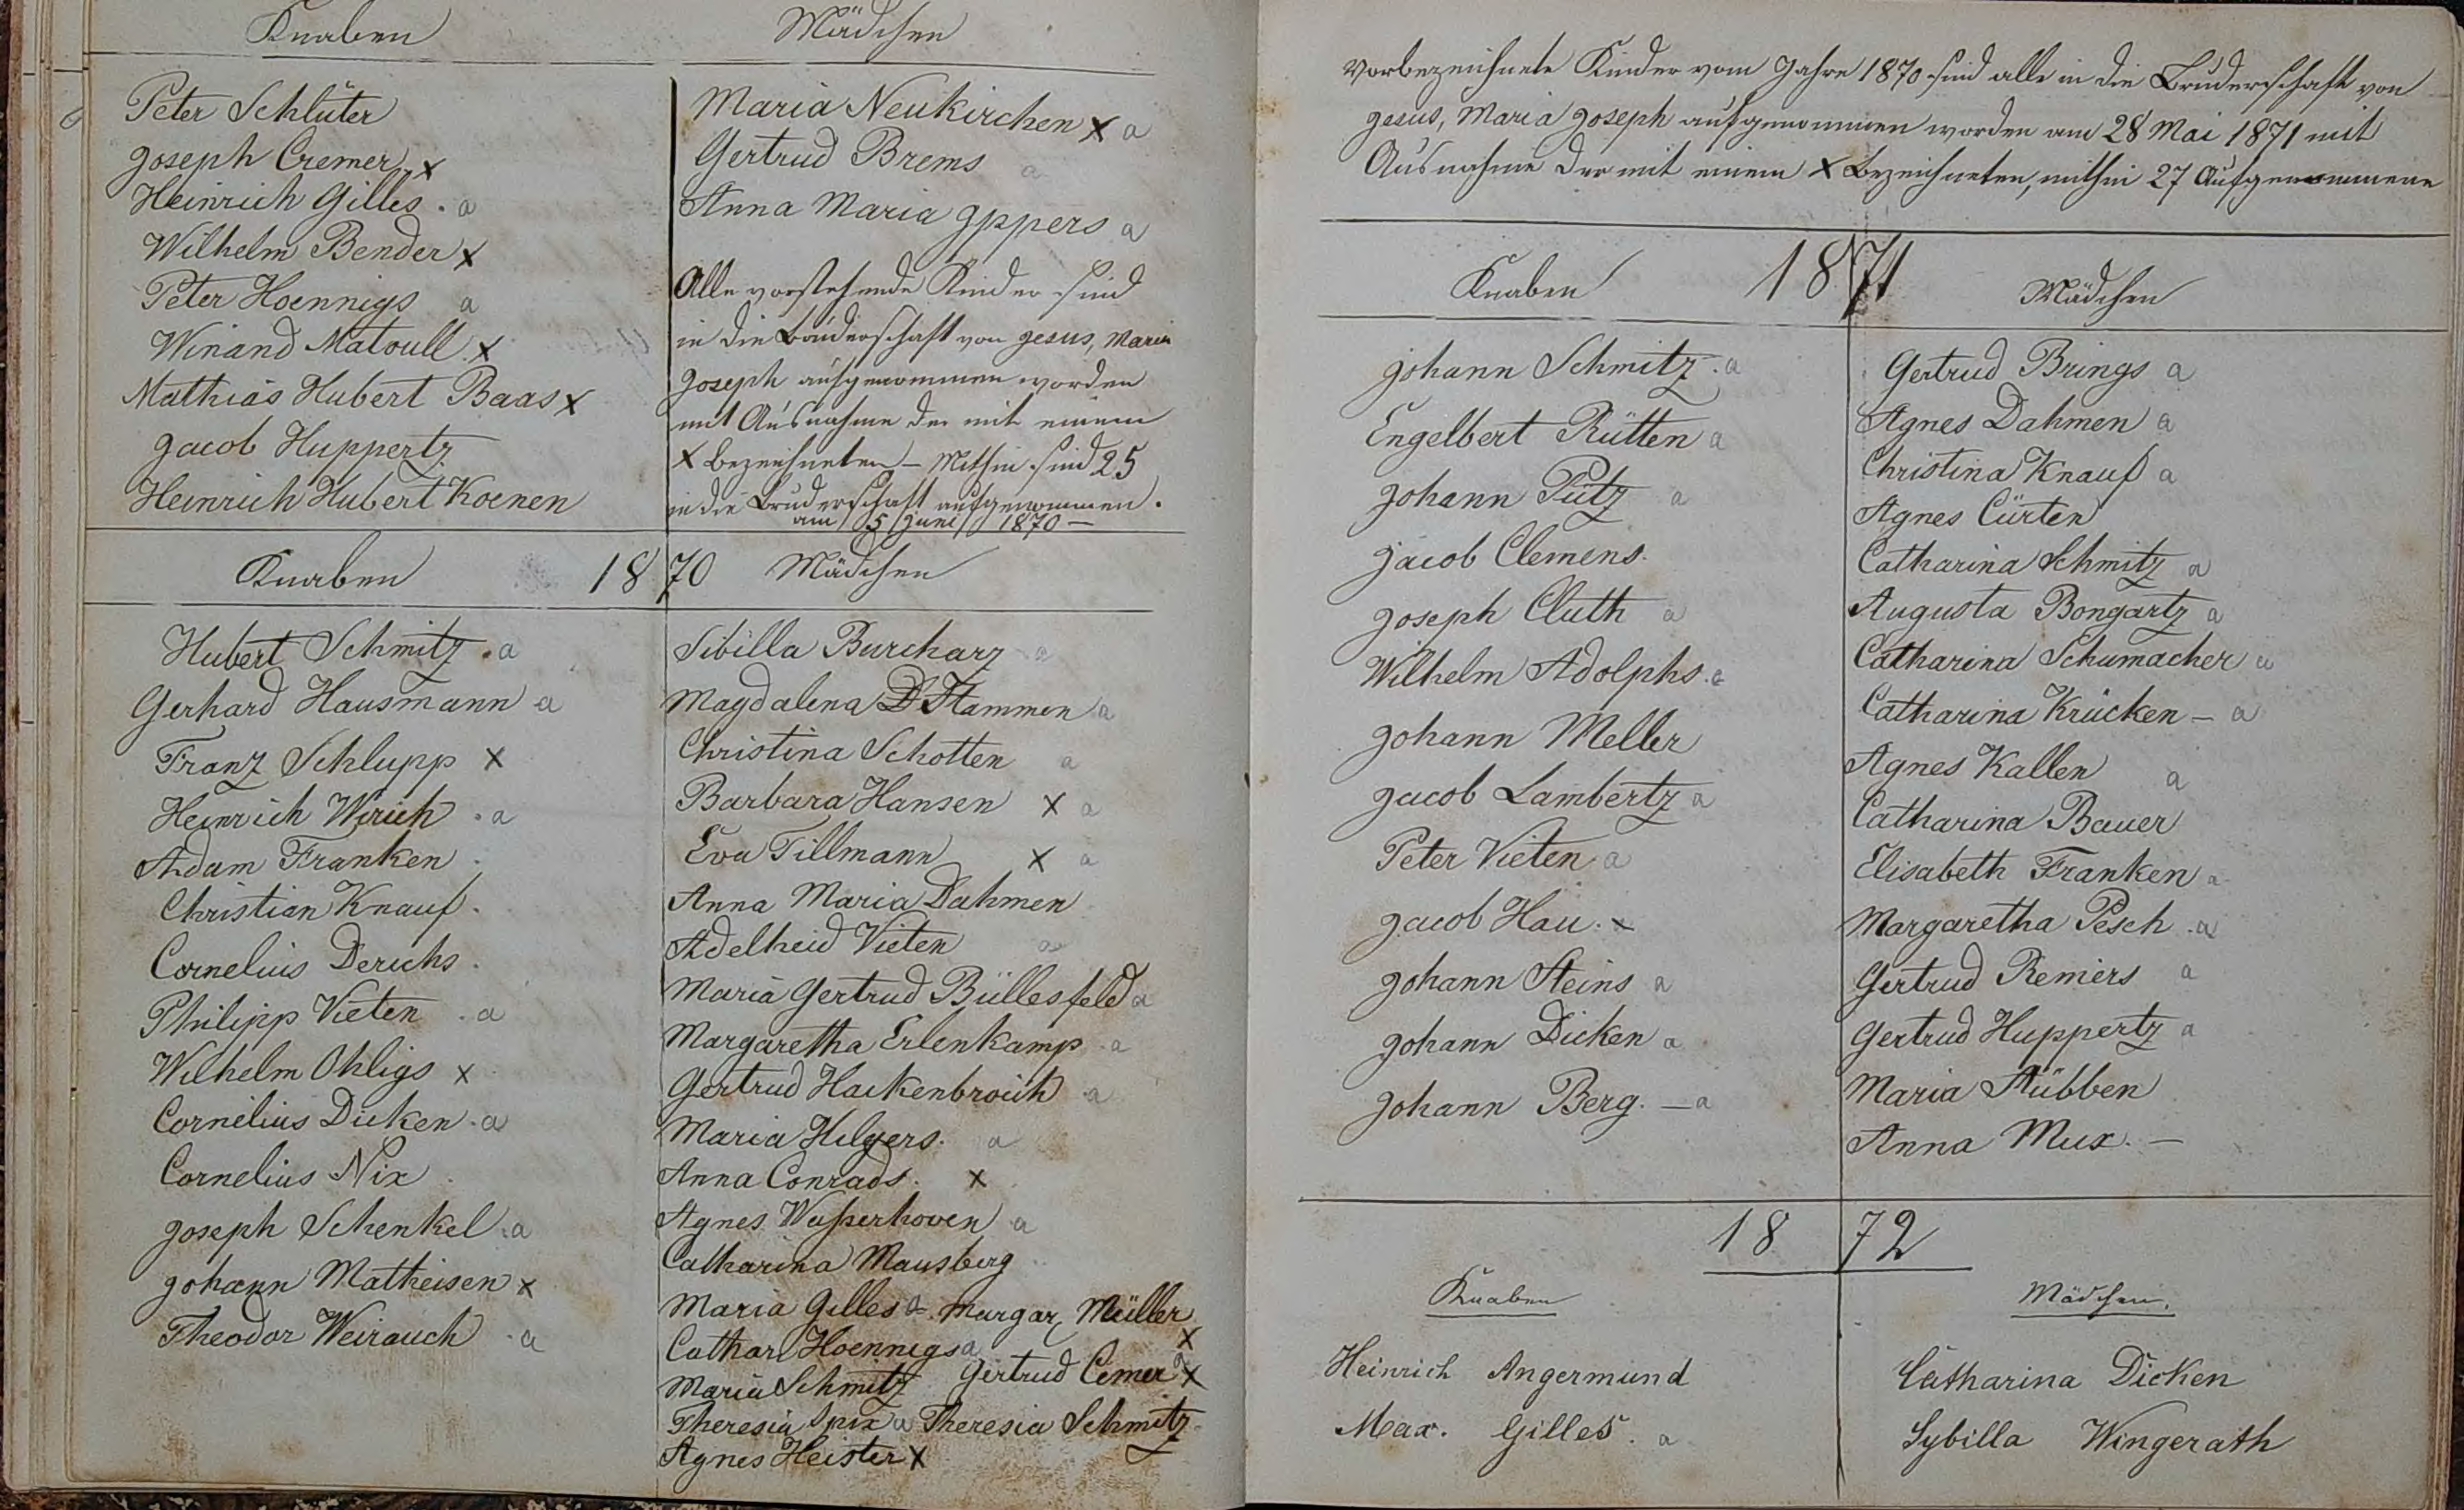 Knaben
Peter Schlüter
Joseph Cremer x
Heinrich Gilles . a
Wilhelm Bender x
Peter Hoennigs a
Winand Matoull x
Mathias Hubert Baas x
Jacob Huppertz
Heinrich Hubert Koenen
Mädchen
Maria Neukirchen x a
Gertrud Brems a
Anna Maria Ippers a
Alle vorstehende Kinder sind
in die Bruderschaft von Jesus, Maria
Joseph aufgenommen worden
mit Ausnahme der mit einem
x bezeichneten – Mithin sind 25
in die Bruderschaft aufgenommen.
am 5 Juni 1870 –
Knaben 1870 Mädchen
Hubert Schmitz . a
Gerhard Hausmann a
Franz Schlupp x
Heinrich Wirich . a
Adam Franken .
Christian Knauf .
Cornelius Derichs .
Philipp Vieten . a
Wilhelm Ohligs x
Cornelius Dicken . a
Cornelius Nix .
Joseph Schenkel . a
Johann Matheisen x
Theodor Weirauch . a
Sibilla Burcharz a
Magdalena Stammen a
Christina Schotten a
Barbara Hansen x a
Eva Tillmann x a
Anna Maria Dahmen
Adelheid Vieten a
Maria Gertrud Büllesfeld a
Margaretha Erlenkamp . a
Gertrud Hackenbroich a
Maria Hilgers . a
Anna Conrads . x
Agnes Waßerhoven a
Catharina Mausberg
Maria Gilles a Margar Müller x
Cathar Hoennigs a
Maria Schmitz Gertrud Cemer a x
Theresia Spix a Theresia Schmitz
Agnes Heister x
Vorbezeichnete Kinder vom Jahre 1870 sind alle in die Bruderschaft von
Jesus, Maria Joseph aufgenommen worden am 28 Mai 1871 mit
Ausnahme der mit einem x bezeichneten, mithin 27 Aufgenommene
Knaben 1871 Mädchen
Johann Schmitz . a
Engelbert Rütten a
Johann Pütz a
Jacob Clemens .
Joseph Cluth a
Wilhelm Adolphs . a
Johann Meller
Jacob Lambertz a
Peter Vieten a
Jacob Hau . x
Johann Steins a
Johann Dicken a
Johann Berg . – a
Gertrud Brings a
Agnes Dahmen a
Christina Knauf a
Agnes Cürten
Catharina Schmitz a
Augusta Bongartz a
Catharina Schumacher a
Catharina Krücken – a
Agnes Kallen a
Catharina Bauer
Elisabeth Franken a
Margaretha Pesch . a
Gertrud Remers a
Gertrud Huppertz a
Maria Stübben
Anna Mux . –
1872
Knaben
Heinrich Angermund
Max. Gilles . a
Mädchen.
Catharina Dicken
Sybilla Wingerath